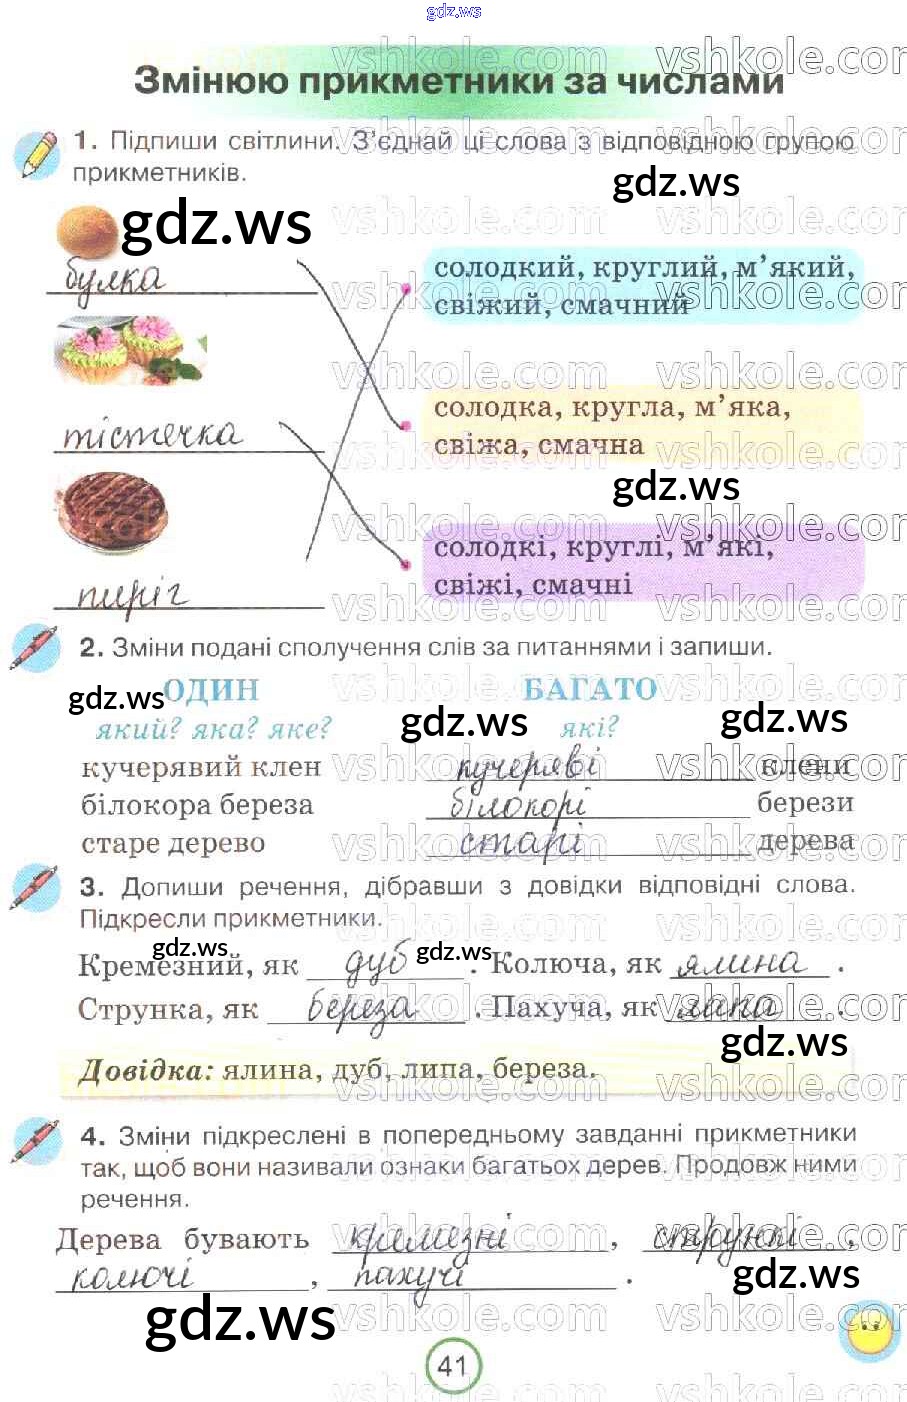 gdz.ws
vshkole.com
Змінюю прикметники за числами
1. Підпиши світлини. З'єднай ці слова з відповідною групою
прикметників.
gdz.ws
gdz.ws
булка
солодкий, круглий, м'який,
свіжий, смачний
тістечка
солодка, кругла, м'яка,
свіжа, смачна
gdz.ws
пиріг
солодкі, круглі, м'які,
свіжі, смачні
2. Зміни подані сполучення слів за питаннями і запиши.
gdz.ws ОДИН БАГАТО
який? яка? яке? gdz.ws які? gdz.ws
кучерявий клен кучеряві клени
білокора береза білокорі берези
старе дерево старі дерева
3. Допиши речення, дібравши з довідки відповідні слова.
Підкресли прикметники.
gdz.ws gdz.ws
Кремезний, як дуб . Колюча, як ялина .
Струнка, як береза . Пахуча, як липа .
gdz.ws
Довідка: ялина, дуб, липа, береза.
4. Зміни підкреслені в попередньому завданні прикметники
так, щоб вони називали ознаки багатьох дерев. Продовж ними
речення.
Дерева бувають кремезні , стрункі ,
колючі , пахучі .
gdz.ws
gdz.ws
41